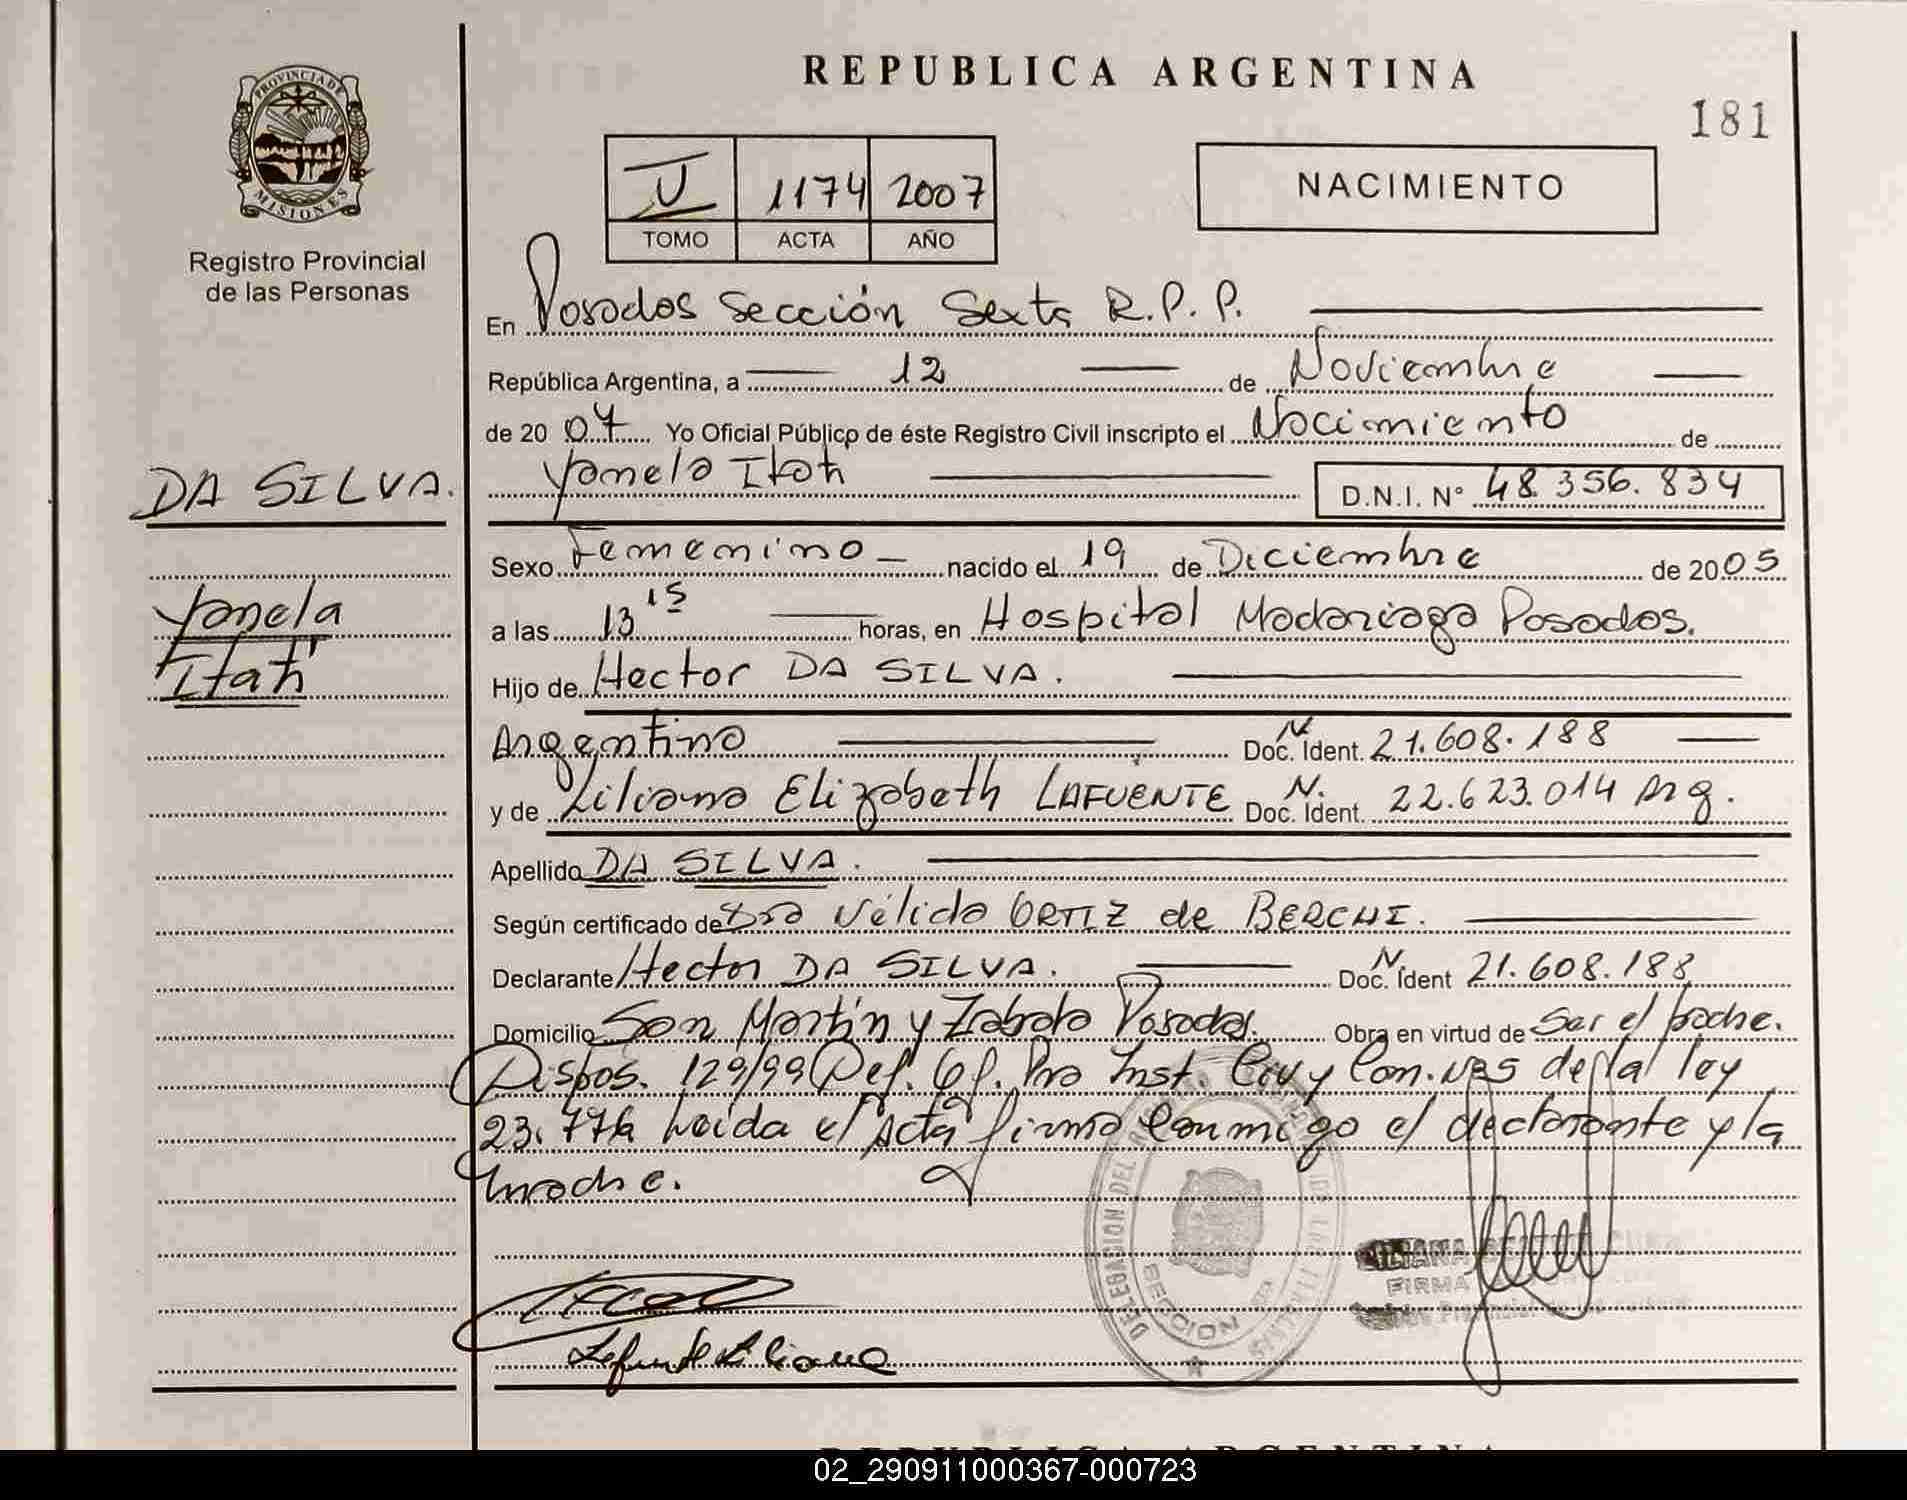 REPUBLICA ARGENTINA
181
PROVINCIA DE
MISIONES
Registro Provincial
de las Personas
V 1174 2007
TOMO ACTA AÑO
NACIMIENTO
En Posadas Sección Sexta R.P.P.
República Argentina, a 12 de Noviembre
de 2007 Yo Oficial Público de éste Registro Civil inscripto el Nacimiento de
Yanela Itatí D.N.I. N° 48.356.834
DA SILVA.
Yanela
Itatí
Sexo Femenino nacido el 19 de Diciembre de 2005
a las 13 15 horas, en Hospital Madariaga Posadas.
Hijo de Hector DA SILVA.
Argentino Doc. Ident. N 21.608.188
y de Liliana Elizabeth LAFUENTE Doc. Ident. N. 22.623.014 Arg.
Apellido DA SILVA.
Según certificado de Dra Nélida ORTIZ de BERCHI.
Declarante Hector DA SILVA. Doc. Ident N. 21.608.188
Domicilio San Martín y Zabala Posadas. Obra en virtud de ser el padre.
Dispos. 129/99 Def. Of. Pra Inst. Civ y Com. de la ley
23.776 Leida el Acta firma conmigo el declarante y la
madre.
DELEGACION DEL
SECCION
LILIANA
FIRMA
Provincial de las
Lafuente Liliana
REPUBLICA ARGENTINA
02_290911000367-000723